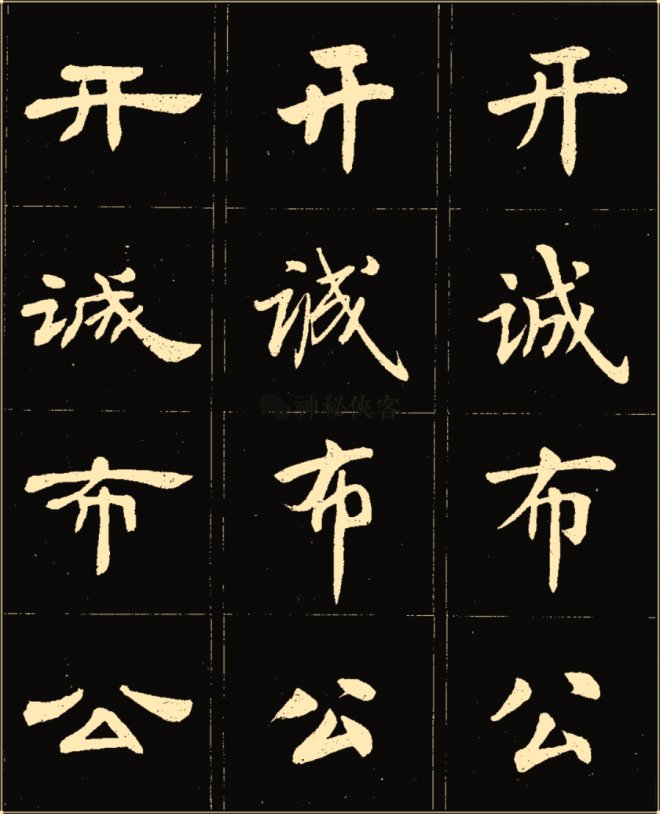 开 开 开
诚 诚 诚
布 布 布
公 公 公
神秘侠客